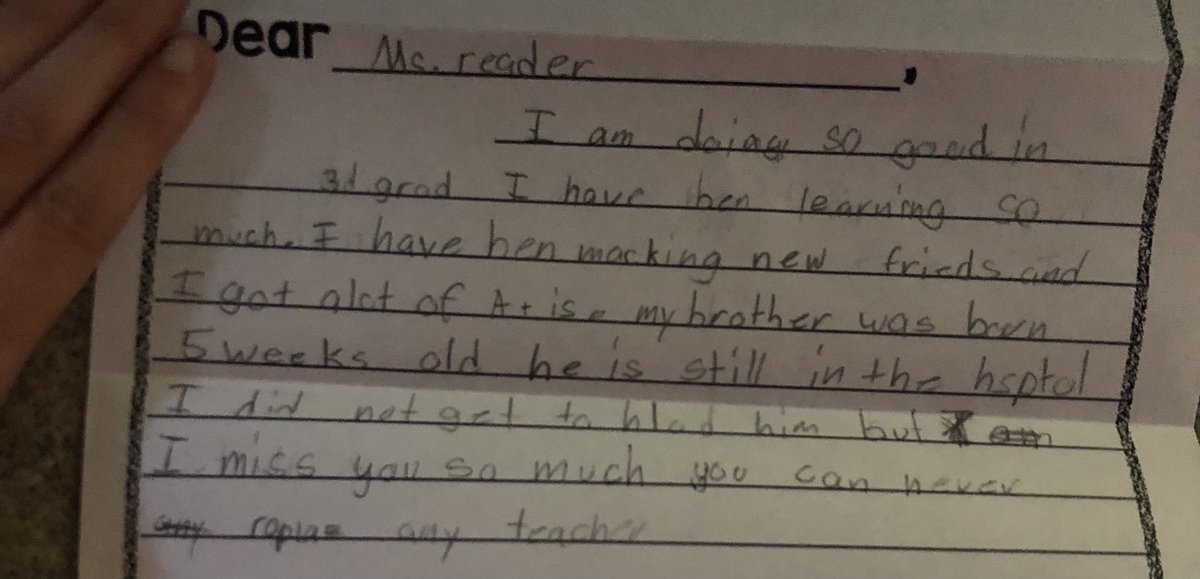 Dear Ms. reader.
I am doing so good in
3d grad I have ben learning so
much. I have ben macking new frieds and
I got alot of A+ is. my brother was born
5 weeks old he is still in the hsptol
I did not get to hlad him but
I miss you so much you can never
any replae any teacher